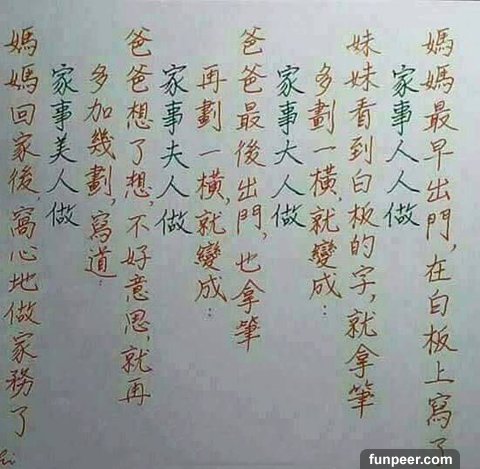 媽媽最早出門,在白板上寫了
家事人人做
妹妹看到白板的字,就拿筆
多劃一橫,就變成:
家事大人做
爸爸最後出門,也拿筆
再劃一橫,就變成:
家事夫人做
爸爸想了想,不好意思,就再
多加幾劃,寫道:
家事美人做
媽媽回家後,窩心地做家務了
funpeer.com